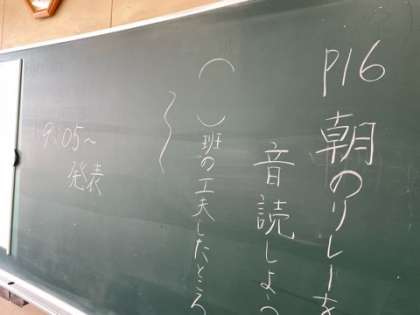 P16
朝のリレーを
音読しよう
（　）班の工夫したところ
9:05〜
発表